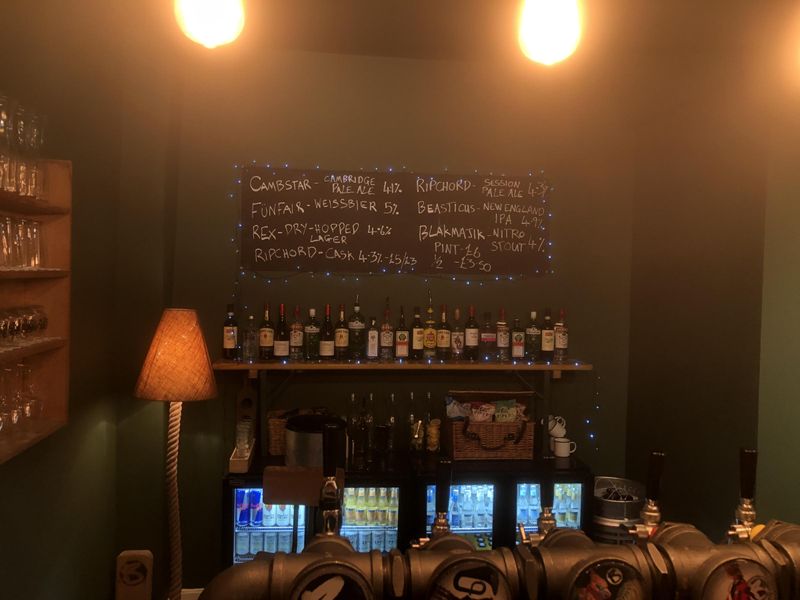 CAMBSTAR - CAMBRIDGE
PALE ALE 4.1%
FUNFAIR - WEISSBIER 5%
REX - DRY-HOPPED 4.6%
LAGER
RIPCHORD - CASK 4.3% - £5/£3
RIPCHORD - SESSION
PALE ALE 4.3%
BEASTICUS - NEW ENGLAND
IPA 4.9%
BLAKMAJIK - NITRO
STOUT 4%
PINT - £6
½ - £3.50